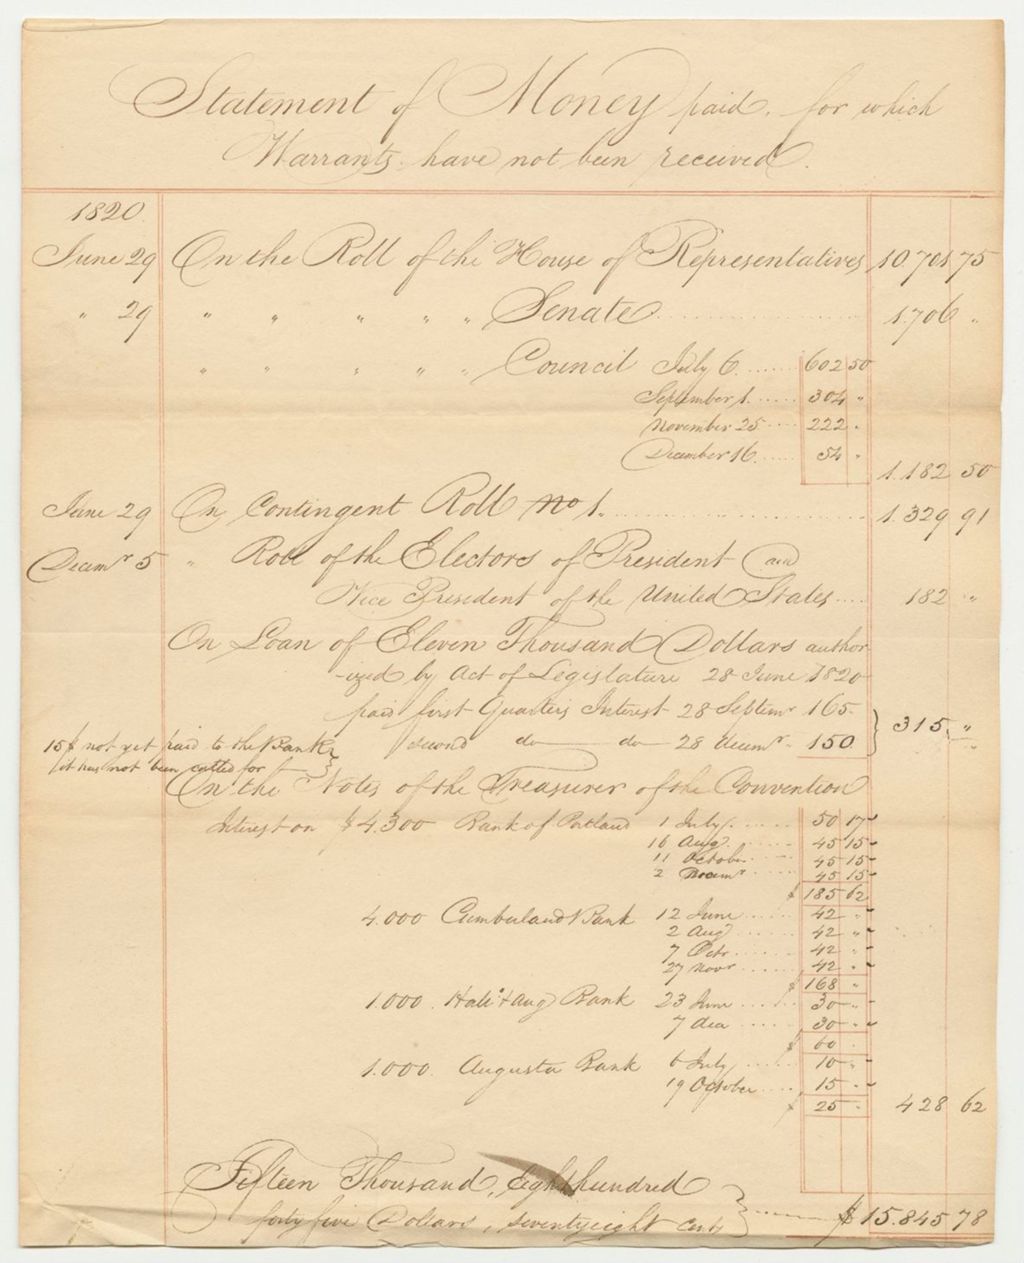 Statement of Money paid, for which
Warrants have not been received.
1820.
June 29 On the Roll of the House of Representatives 10.701 75
" 29 " " " " " Senate 1.706 "
" " " " " Council July 6 602 50
September 1. 304 "
November 25 222 "
December 16 54 "
1.182 50
June 29 On Contingent Roll No 1. 1.329 91
Decemr 5 " Roll of the Electors of President and
Vice President of the United States 182 "
On Loan of Eleven Thousand Dollars author
-ized by Act of Legislature 28 June 1820
paid first Quarters Interest 28 Septemr 165.
315. "
second do do 28 Decemr 150
15$ not yet paid to the Bank
it has not been called for
On the Notes of the Treasurer of the Convention
Interest on $4.300 Bank of Portland 1 July 50 17
16 Aug 45 15
11 October 45 15
2 Novemr 45 15
$ 185 62
4.000 Cumberland Bank 12 June 42 "
2 Aug 42 "
7 Octr 42 "
27 Novr 42 "
$ 168 "
1.000. Hal: & Aug Bank 23 June 30 "
7 Dec 30 "
$ 60 .
1.000. Augusta Bank 6 July 10 "
19 October 15 "
$ 25 " 428 62
Fifteen Thousand, Eight hundred
forty five Dollars, seventy eight Cents $15.845 78